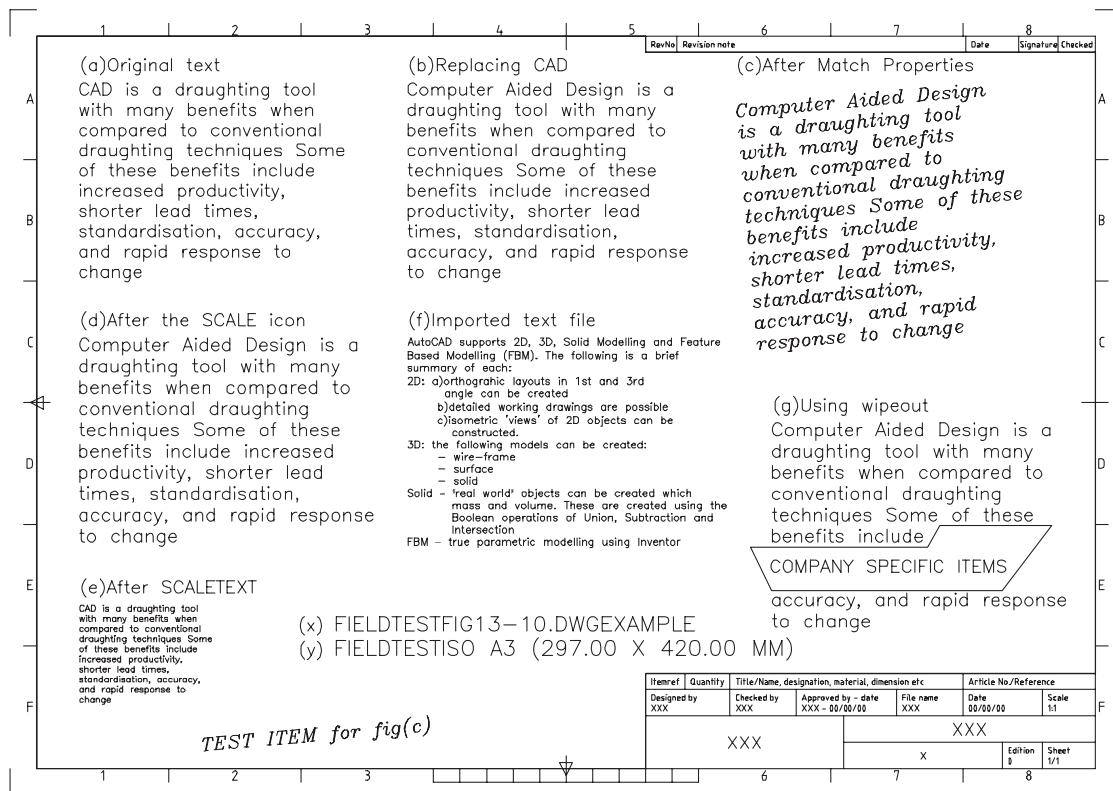 1 2 3 4 5 6 7 8
RevNo Revision note Date Signature Checked
A
B
C
D
E
F
A
B
C
D
E
F
(a)Original text
CAD is a draughting tool
with many benefits when
compared to conventional
draughting techniques Some
of these benefits include
increased productivity,
shorter lead times,
standardisation, accuracy,
and rapid response to
change
(b)Replacing CAD
Computer Aided Design is a
draughting tool with many
benefits when compared to
conventional draughting
techniques Some of these
benefits include increased
productivity, shorter lead
times, standardisation,
accuracy, and rapid response
to change
(c)After Match Properties
Computer Aided Design
is a draughting tool
with many benefits
when compared to
conventional draughting
techniques Some of these
benefits include
increased productivity,
shorter lead times,
standardisation,
accuracy, and rapid
response to change
(d)After the SCALE icon
Computer Aided Design is a
draughting tool with many
benefits when compared to
conventional draughting
techniques Some of these
benefits include increased
productivity, shorter lead
times, standardisation,
accuracy, and rapid response
to change
(f)Imported text file
AutoCAD supports 2D, 3D, Solid Modelling and Feature
Based Modelling (FBM). The following is a brief
summary of each:
2D: a)orthograhic layouts in 1st and 3rd
angle can be created
b)detailed working drawings are possible
c)isometric 'views' of 2D objects can be
constructed.
3D: the following models can be created:
– wire–frame
– surface
– solid
Solid – 'real world' objects can be created which
mass and volume. These are created using the
Boolean operations of Union, Subtraction and
Intersection
FBM – true parametric modelling using Inventor
(g)Using wipeout
Computer Aided Design is a
draughting tool with many
benefits when compared to
conventional draughting
techniques Some of these
benefits include
COMPANY SPECIFIC ITEMS
accuracy, and rapid response
to change
(e)After SCALETEXT
CAD is a draughting tool
with many benefits when
compared to conventional
draughting techniques Some
of these benefits include
increased productivity,
shorter lead times,
standardisation, accuracy,
and rapid response to
change
(x) FIELDTESTFIG13–10.DWGEXAMPLE
(y) FIELDTESTISO A3 (297.00 X 420.00 MM)
TEST ITEM for fig(c)
Itemref Quantity Title/Name, designation, material, dimension etc Article No./Reference
Designed by Checked by Approved by - date File name Date Scale
XXX XXX XXX - 00/00/00 XXX 00/00/00 1:1
XXX
XXX
X
Edition Sheet
0 1/1
1 2 3 6 7 8